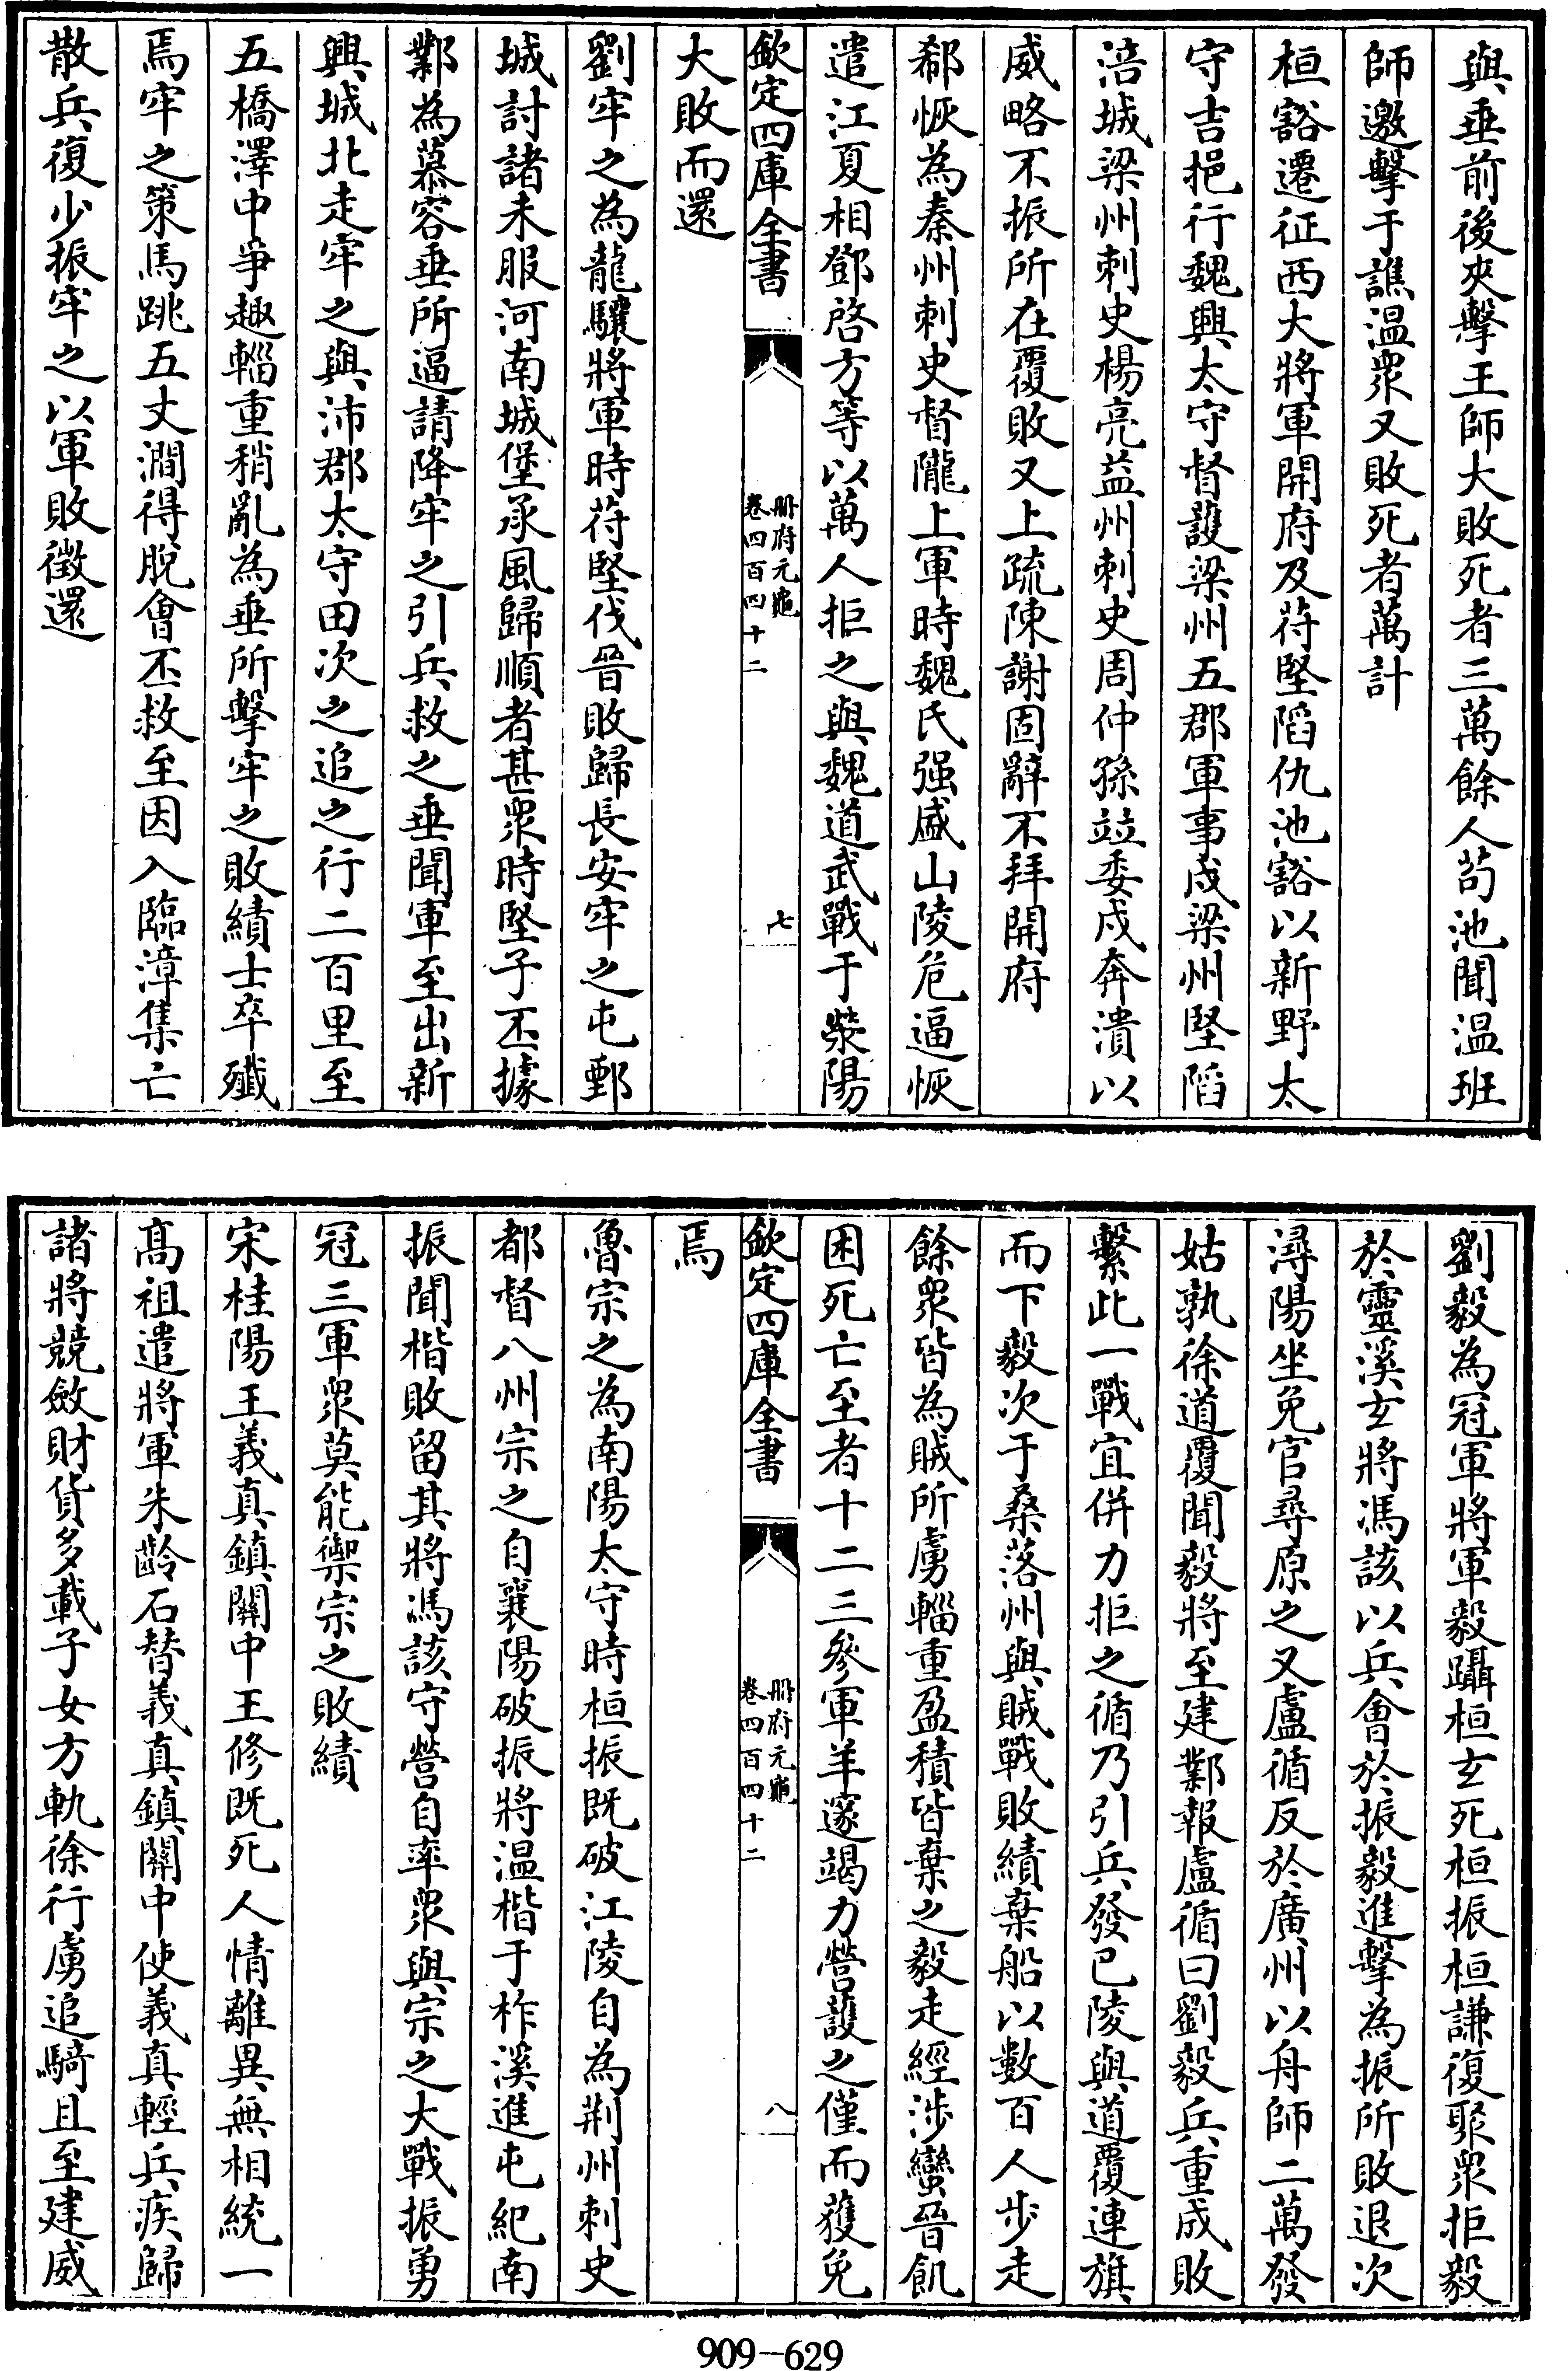 與垂前後夾擊王師大敗死者三萬餘人苟池聞温班
師邀擊于譙温衆又敗死者萬計
桓豁遷征西大將軍開府及苻堅陷仇池豁以新野太
守吉挹行魏興太守督護梁州五郡軍事戍梁州堅陷
涪城梁州刺史楊亮益州刺史周仲孫竝委戍奔潰以
威略不振所在覆敗又上疏陳謝固辭不拜開府
郗恢為秦州刺史督隴上軍時魏氏强盛山陵危逼恢
遣江夏相鄧啓方等以萬人拒之與魏道武戰于滎陽
欽定四庫全書
册府元龜
卷四百四十二
七
大敗而還
劉牢之為龍驤將軍時苻堅伐晉敗歸長安牢之屯鄄
城討諸未服河南城堡承風歸順者甚衆時堅子丕據
鄴為慕容垂所逼請降牢之引兵救之垂聞軍至出新
興城北走牢之與沛郡太守田次之追之行二百里至
五橋澤中爭趣輜重稍亂為垂所擊牢之敗績士卒殲
焉牢之策馬跳五丈澗得脫會丕救至因入臨漳集亡
散兵復少振牢之以軍敗徵還
劉毅為冠軍將軍毅躡桓玄死桓振桓謙復聚衆拒毅
於靈溪玄將馮該以兵會於振毅進擊為振所敗退次
潯陽坐免官尋原之又盧循反於廣州以舟師二萬發
姑孰徐道覆聞毅將至建鄴報盧循曰劉毅兵重成敗
繫此一戰宜併力拒之循乃引兵發巴陵與道覆連旗
而下毅次于桑落州與賊戰敗績棄船以數百人步走
餘衆皆為賊所虜輜重盈積皆棄之毅走經涉蠻晉飢
困死亡至者十二三參軍羊邃竭力營護之僅而獲免
欽定四庫全書
册府元龜
卷四百四十二
八
焉
魯宗之為南陽太守時桓振既破江陵自為荆州刺史
都督八州宗之自襄陽破振將温楷于柞溪進屯紀南
振聞楷敗留其將馮該守營自率衆與宗之大戰振勇
冠三軍衆莫能禦宗之敗績
宋桂陽王義真鎮關中王修既死人情離異無相統一
高祖遣將軍朱齡石替義真鎮關中使義真輕兵疾歸
諸將競斂財貨多載子女方軌徐行虜追騎且至建威
909-629